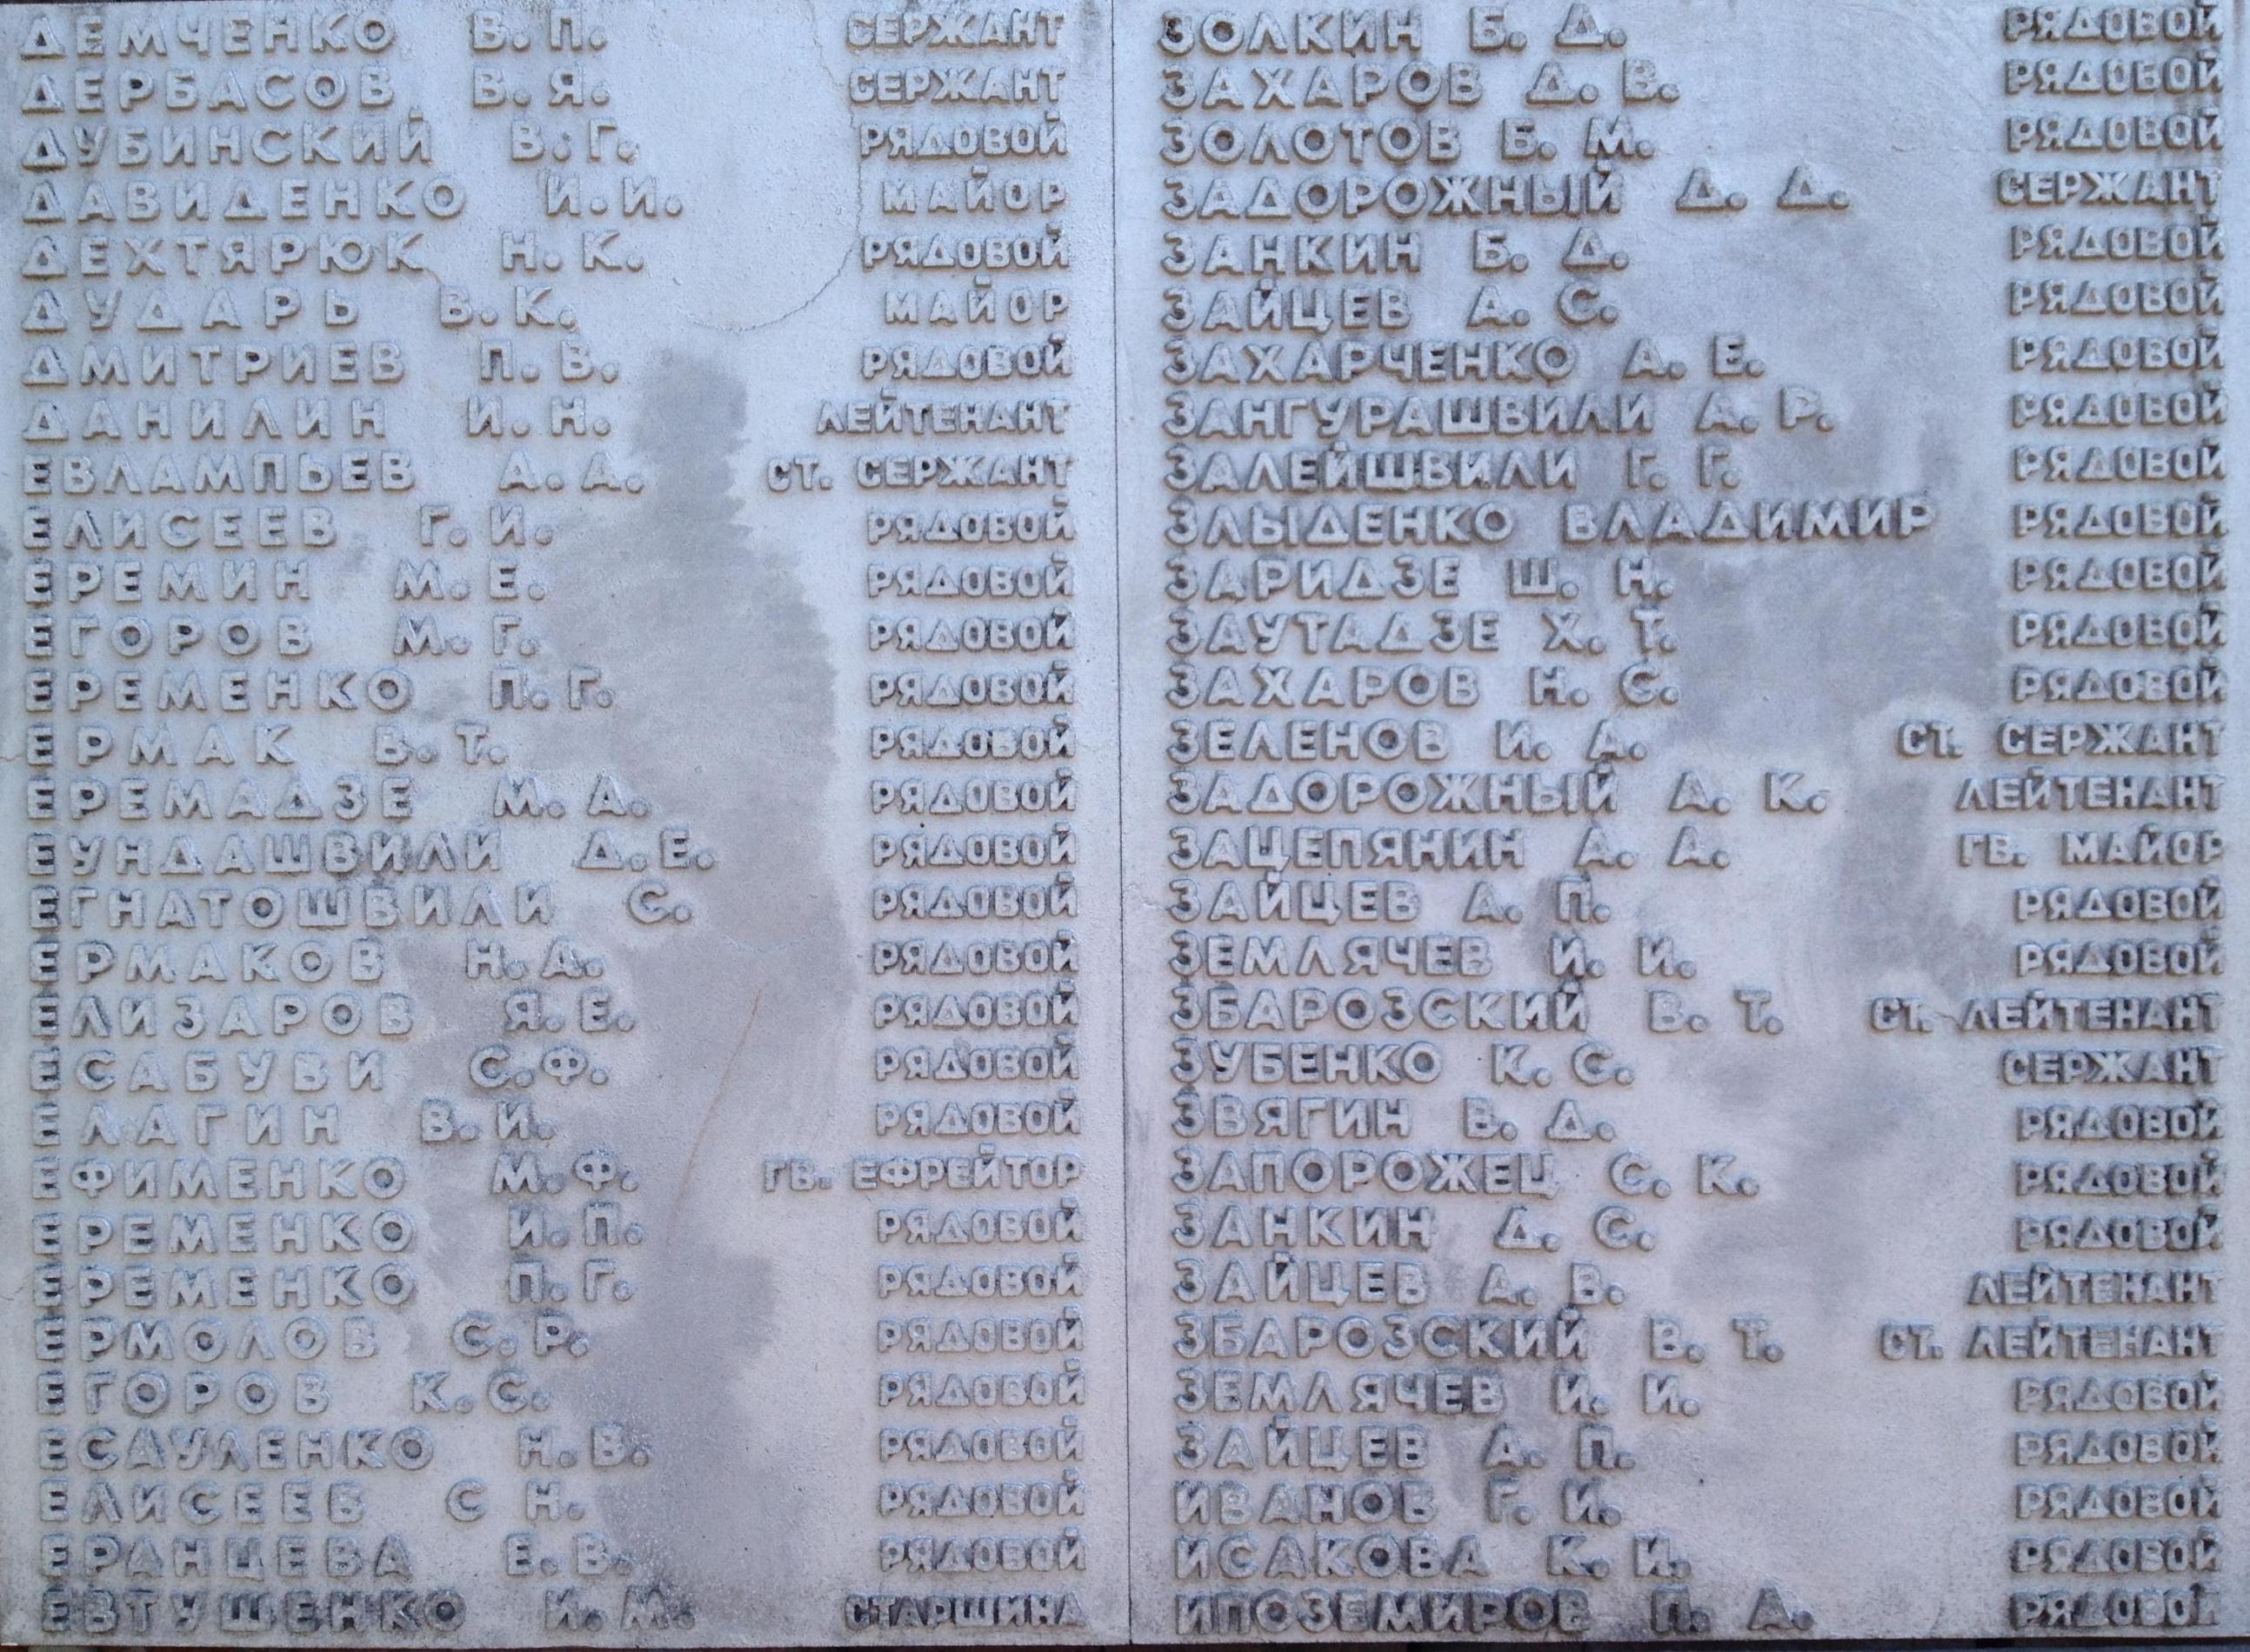 ДЕМЧЕНКО В.П. СЕРЖАНТ
ДЕРБАСОВ В.Я. СЕРЖАНТ
ДУБИНСКИЙ В.Г. РЯДОВОЙ
ДАВИДЕНКО И.И. МАЙОР
ДЕХТЯРЮК Н.К. РЯДОВОЙ
ДУДАРЬ В.К. МАЙОР
ДМИТРИЕВ П.В. РЯДОВОЙ
ДАНИЛИН И.Н. ЛЕЙТЕНАНТ
ЕВЛАМПЬЕВ А.А. СТ. СЕРЖАНТ
ЕЛИСЕЕВ Г.И. РЯДОВОЙ
ЕРЕМИН М.Е. РЯДОВОЙ
ЕГОРОВ М.Г. РЯДОВОЙ
ЕРЕМЕНКО П.Г. РЯДОВОЙ
ЕРМАК В.Т. РЯДОВОЙ
ЕРЕМАДЗЕ М.А. РЯДОВОЙ
ЕУНДАШВИЛИ Д.Е. РЯДОВОЙ
ЕГНАТОШВИЛИ С. РЯДОВОЙ
ЕРМАКОВ Н.А. РЯДОВОЙ
ЕЛИЗАРОВ Я.Е. РЯДОВОЙ
ЕСАБУВИ С.Ф. РЯДОВОЙ
ЕЛАГИН В.И. РЯДОВОЙ
ЕФИМЕНКО М.Ф. ГВ. ЕФРЕЙТОР
ЕРЕМЕНКО И.П. РЯДОВОЙ
ЕРЕМЕНКО П.Г. РЯДОВОЙ
ЕРМОЛОВ С.Р. РЯДОВОЙ
ЕГОРОВ К.С. РЯДОВОЙ
ЕСАУЛЕНКО Н.В. РЯДОВОЙ
ЕЛИСЕЕВ С Н. РЯДОВОЙ
ЕРАНЦЕВА Е.В. РЯДОВОЙ
ЕВТУШЕНКО И.М. СТАРШИНА
ЗОЛКИН Б. Д. РЯДОВОЙ
ЗАХАРОВ Д. В. РЯДОВОЙ
ЗОЛОТОВ Б. М. РЯДОВОЙ
ЗАДОРОЖНЫЙ Д. Д. СЕРЖАНТ
ЗАНКИН Б. Д. РЯДОВОЙ
ЗАЙЦЕВ А. С. РЯДОВОЙ
ЗАХАРЧЕНКО А. Е. РЯДОВОЙ
ЗАНГУРАШВИЛИ А. Р. РЯДОВОЙ
ЗАЛЕЙШВИЛИ Г. Г. РЯДОВОЙ
ЗЛЫДЕНКО ВЛАДИМИР РЯДОВОЙ
ЗАРИДЗЕ Ш. Н. РЯДОВОЙ
ЗАУТАДЗЕ Х. Т. РЯДОВОЙ
ЗАХАРОВ Н. С. РЯДОВОЙ
ЗЕЛЕНОВ И. А. СТ. СЕРЖАНТ
ЗАДОРОЖНЫЙ А. К. ЛЕЙТЕНАНТ
ЗАЦЕПЯНИН А. А. ГВ. МАЙОР
ЗАЙЦЕВ А. П. РЯДОВОЙ
ЗЕМЛЯЧЕВ И. И. РЯДОВОЙ
ЗБАРОЗСКИЙ В. Т. СТ. ЛЕЙТЕНАНТ
ЗУБЕНКО К. С. СЕРЖАНТ
ЗВЯГИН В. Д. РЯДОВОЙ
ЗАПОРОЖЕЦ С. К. РЯДОВОЙ
ЗАНКИН Д. С. РЯДОВОЙ
ЗАЙЦЕВ А. В. ЛЕЙТЕНАНТ
ЗБАРОЗСКИЙ В. Т. СТ. ЛЕЙТЕНАНТ
ЗЕМЛЯЧЕВ И. И. РЯДОВОЙ
ЗАЙЦЕВ А. П. РЯДОВОЙ
ИВАНОВ Г. И. РЯДОВОЙ
ИСАКОВА К. И. РЯДОВОЙ
ИПОЗЕМИРОВ П. А. РЯДОВОЙ